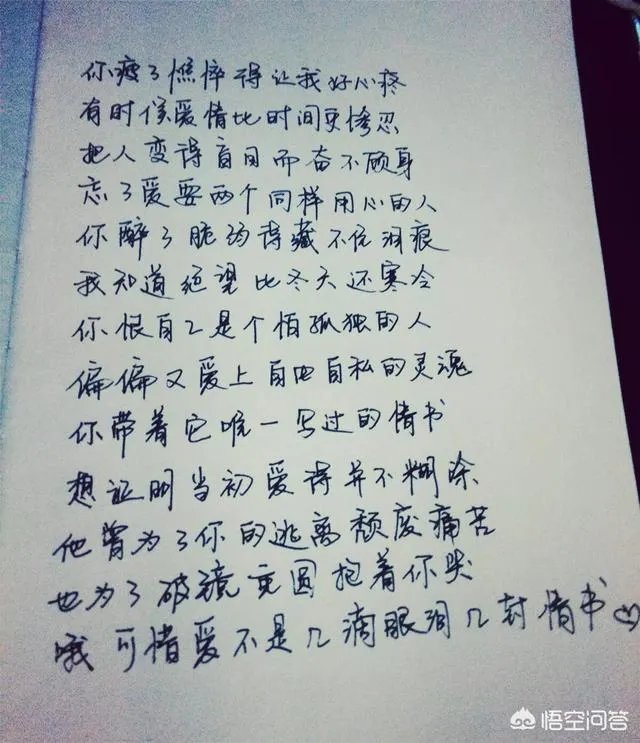 你瘦了憔悴得让我好心疼
有时候爱情比时间更惨忍
把人变得盲目而奋不顾身
忘了爱要两个同样用心的人
你醉了脆弱得藏不住泪痕
我知道绝望比冬天还寒冷
你恨自己是个怕孤独的人
偏偏又爱上自由自私的灵魂
你带着它唯一写过的情书
想证明当初爱得并不糊涂
他曾为了你的逃离颓废痛苦
也为了破镜重圆抱着你哭
哦可惜爱不是几滴眼泪几封情书
悟空问答